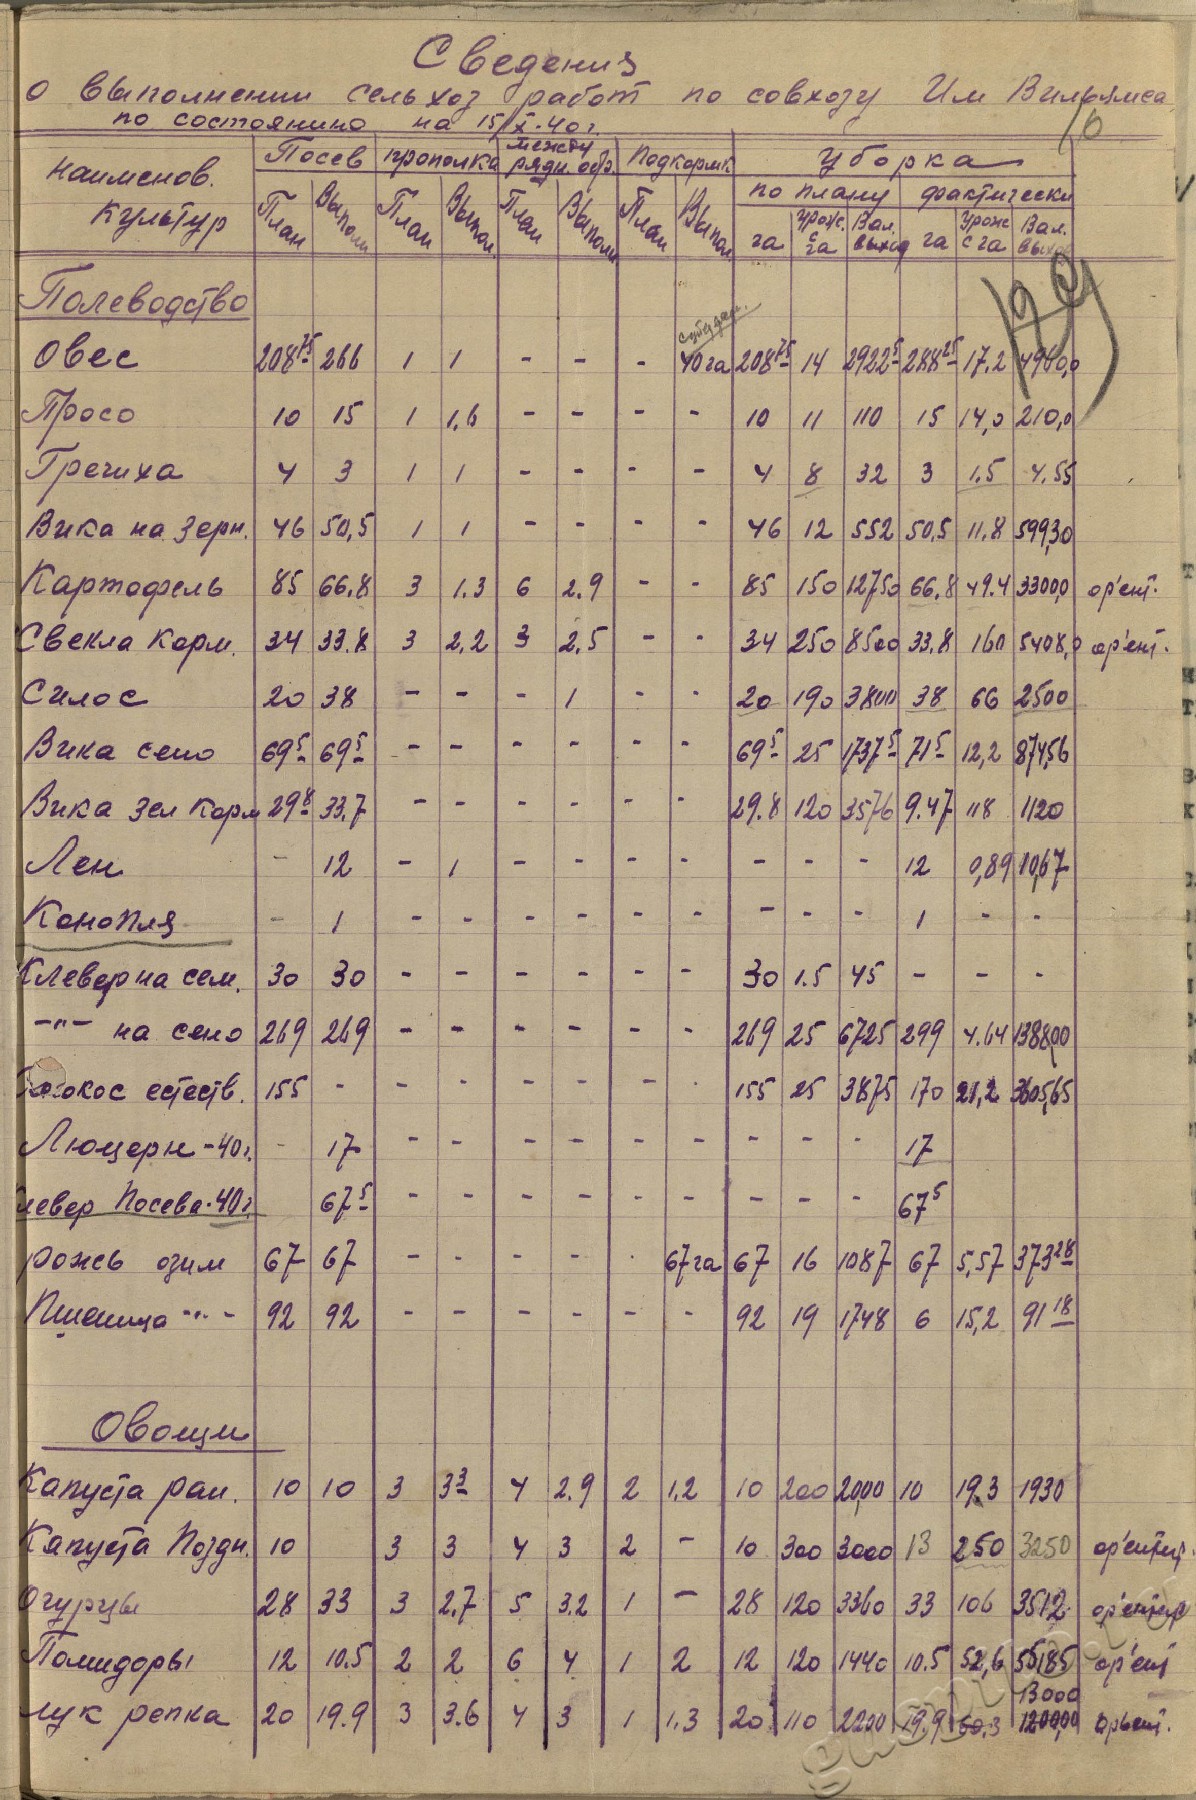 Сведения
о выполнении сельхоз работ по совхозу Им Вильямса
по состоянию на 15/X-40г.
Наименов. культур | Посев | прополка | между рядн. обр. | Подкормк | Уборка
по плану | фактически
План | Выполн | План | Выпол. | План | Выполн | План | Выпол | га | Урож. с га | Вал. выход | га | Урож с га | Вал. выход
Полеводство
Овес 208 75 266 1 1 - - - 40 га 208 75 14 2922 5 288 25 17.2 4960,0
Просо 10 15 1 1,6 - - - - 10 11 110 15 14,0 210,0
Гречиха 4 3 1 1 - - - - 4 8 32 3 1.5 4.55
Вика на Зерн. 46 50,5 1 1 - - - - 46 12 552 50,5 11.8 599,30
Картофель 85 66.8 3 1.3 6 2.9 - - 85 150 12750 66,8 49.4 3300,0 ор'ент.
Свекла Корм. 34 33.8 3 2,2 3 2,5 - - 34 250 8500 33.8 160 5408,0 ор'ент.
Силос 20 38 - - - 1 - - 20 190 3800 38 66 2500
Вика сено 69 5 69 5 - - - - - - 69 5 25 1737 5 71 5 12,2 874,56
Вика Зел Корм 29 8 33,7 - - - - - - 29.8 120 3576 9.47 118 1120
Лен - 12 - 1 - - - - - - - 12 0,89 10,67
Конопля - 1 - - - - - - - - - 1 - -
Клевер на сем. 30 30 - - - - - - 30 1.5 45 - - -
-"- на сено 269 269 - - - - - - 269 25 6725 299 4.64 1388,00
естеств. 155 - - - - - - 155 25 3875 170 21,2 3605,65
Люцерн-40г. - 17 - - - - - - - - - 17
Клевер Посева-40г. 67 5 - - - - - - - - - 67 5
рожь озим 67 67 - - - - - 67 га 67 16 1087 67 5,57 373 28
Пшеница -"- 92 92 - - - - - - 92 19 1748 6 15,2 91 18
Овощи
Капуста ран. 10 10 3 3 3 4 2.9 2 1,2 10 200 2000 10 193 1930
Капуста Поздн. 10 3 3 4 3 2 - 10 300 3000 13 250 3250
Огурцы 28 33 3 2,7 5 3.2 1 - 28 120 3360 33 106 3512
Помидоры 12 10.5 2 2 6 4 1 2 12 120 1440 10.5 52,6 ор'ент
13000
Лук репка 20 19.9 3 3.6 4 3 1 1.3 20 110 2200 19.9 60.3 1200,00